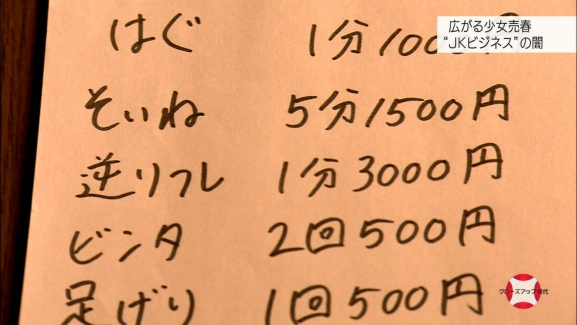 広がる少女売春
“JKビジネス”の闇
はぐ 1分100
そいね 5分1500円
逆リフレ 1分3000円
ビンタ 2回500円
足げり 1回500円
クローズアップ現代